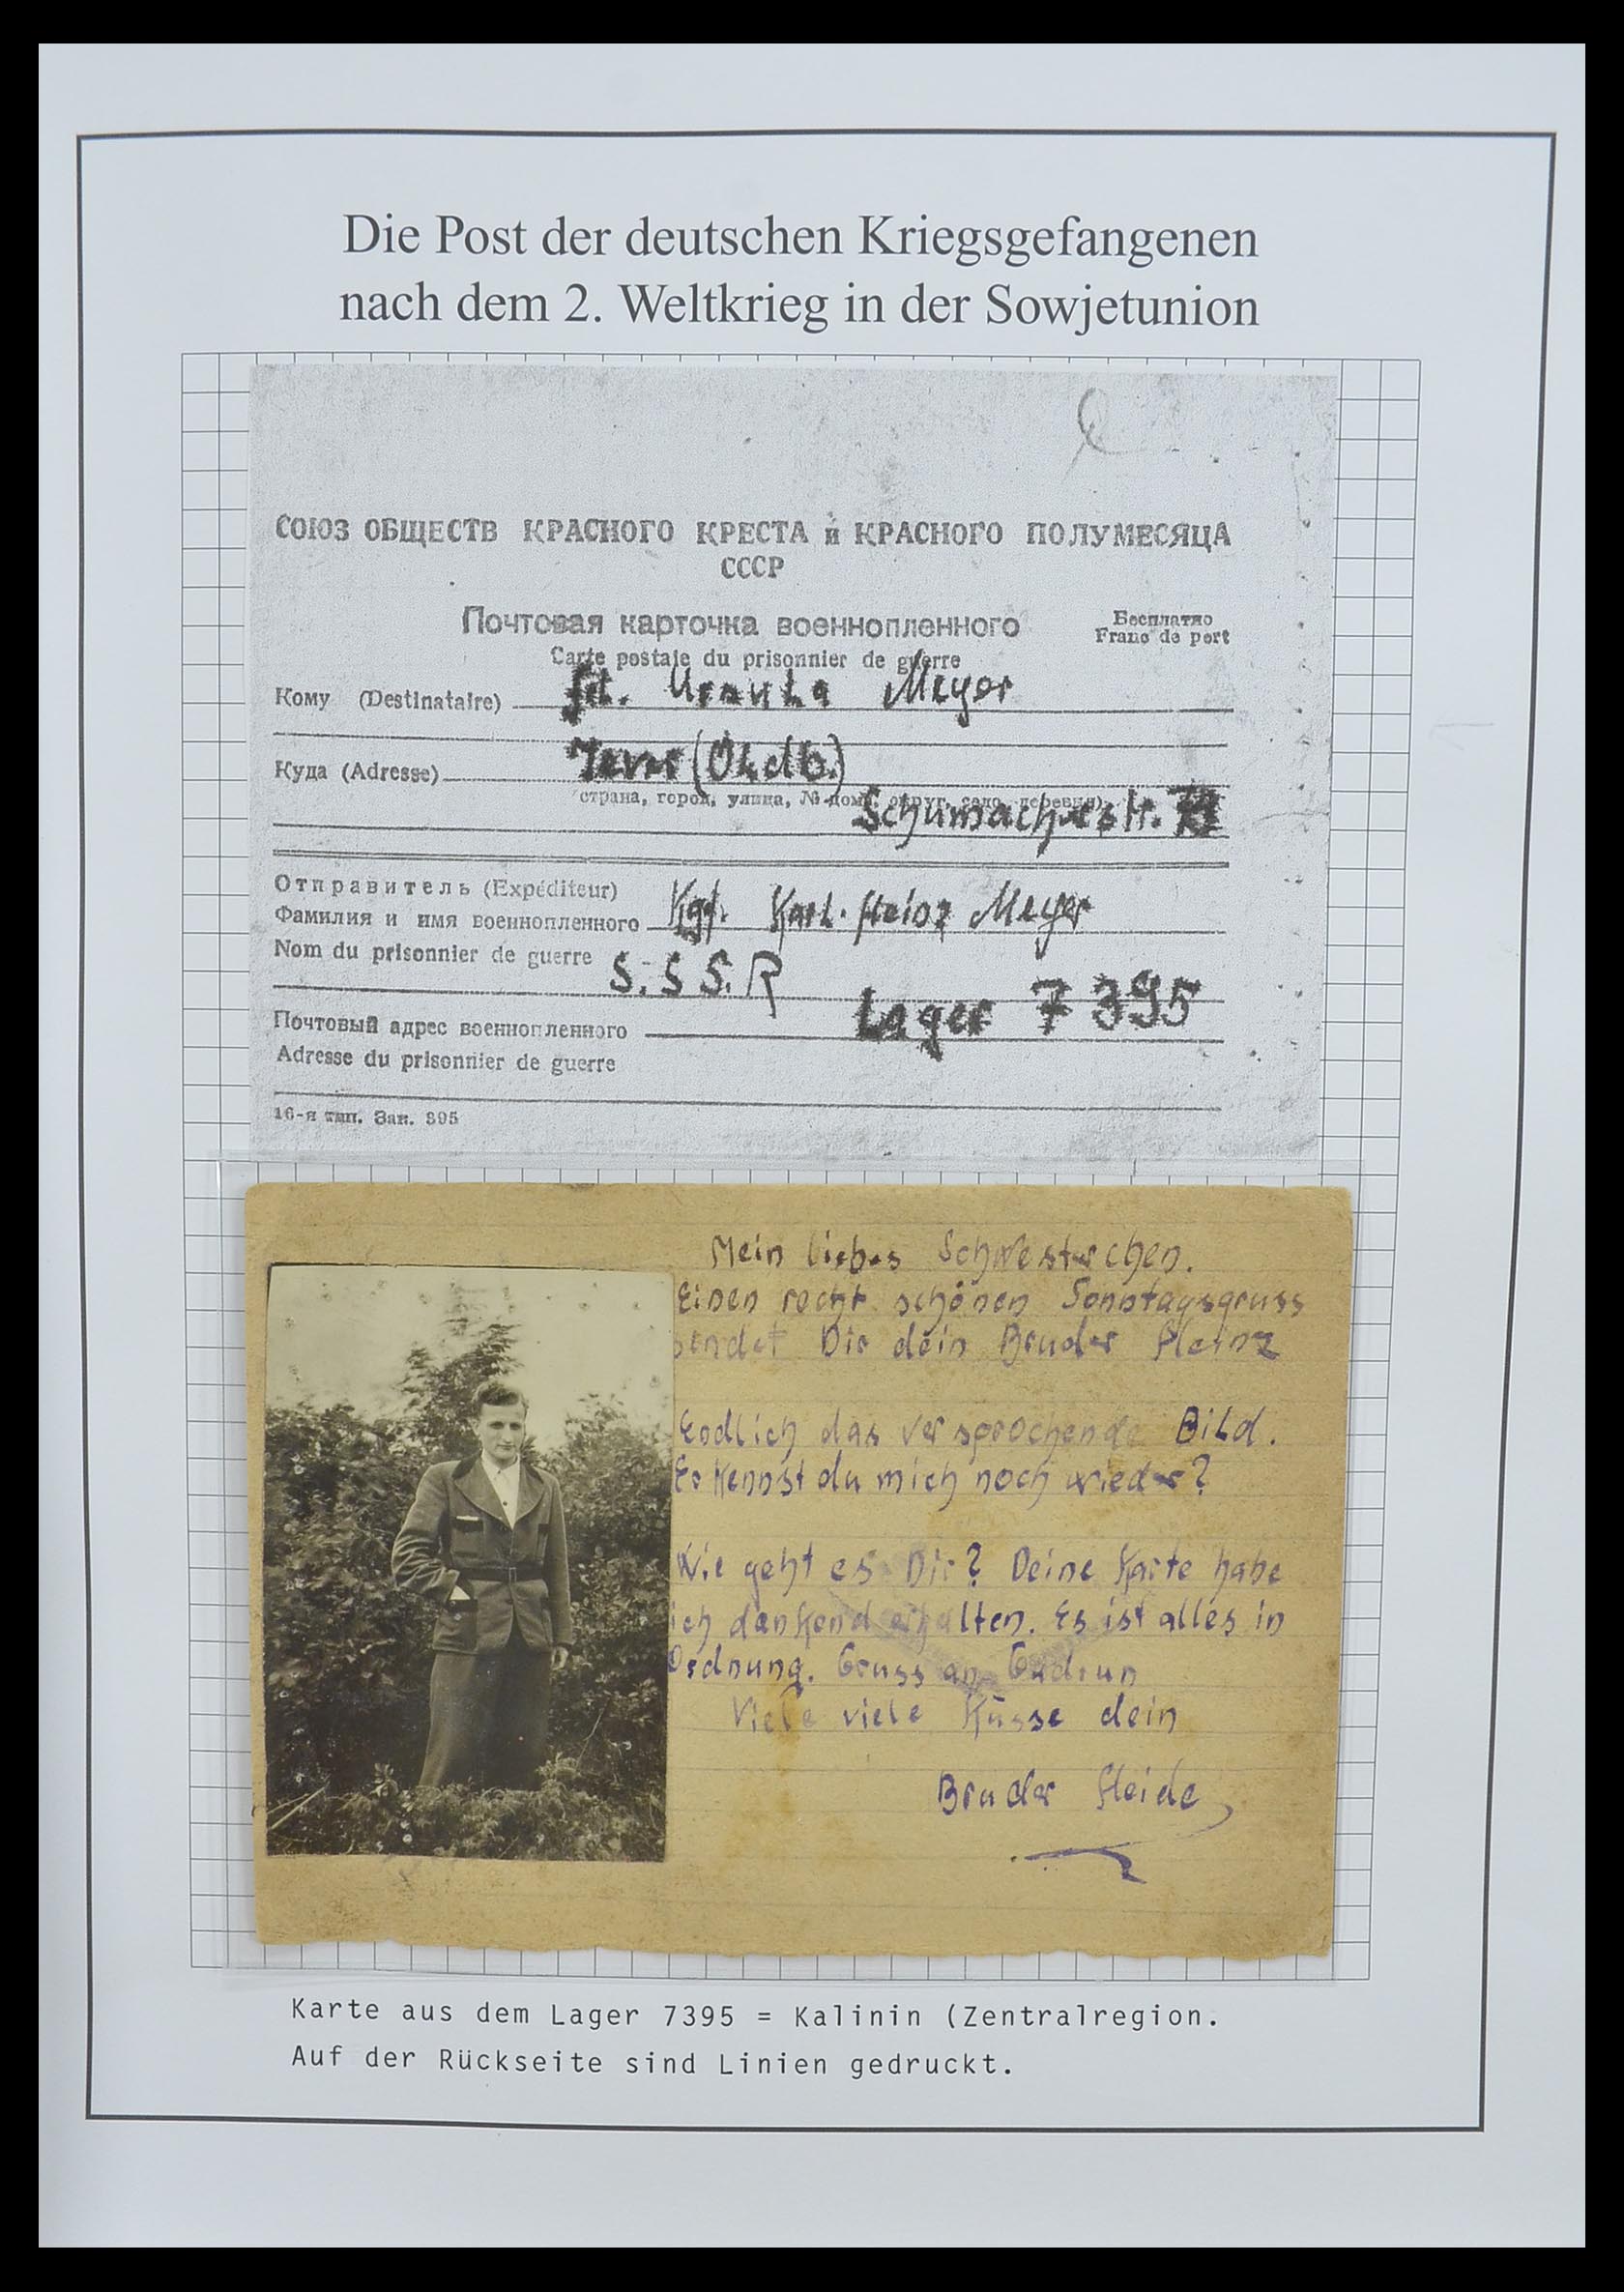 Die Post der deutschen Kriegsgefangenen
nach dem 2. Weltkrieg in der Sowjetunion
СОЮЗ ОБЩЕСТВ КРАСНОГО КРЕСТА и КРАСНОГО ПОЛУМЕСЯЦА
СССР
Почтовая карточка военнопленного
Бесплатно
Carte postale du prisonnier de guerre
Franc de port
Кому (Destinataire) Frl. Ursula Meyer
Куда (Adresse) Jever (Oldb.)
страна, город, улица, № дома, округ, село, деревня)
Schumacherstr.
Отправитель (Expéditeur)
Фамилия и имя военнопленного Kgf. Karl-Heinz Meyer
Nom du prisonnier de guerre S.S S.R
Lager 7395
Почтовый адрес военнопленного
Adresse du prisonnier de guerre
16-я тип. Зак. 395
Mein liebes Schwesterchen.
Einen recht schönen Sonntagsgruss
sendet Dir dein Bruder Heinz
Endlich das versprochende Bild.
Erkennst du mich noch wieder?
Wie geht es Dir? Deine Karte habe
ich dankend erhalten. Es ist alles in
Ordnung. Gruss an Gudrun
Viele viele Küsse dein
Bruder Heide
Karte aus dem Lager 7395 = Kalinin (Zentralregion.
Auf der Rückseite sind Linien gedruckt.